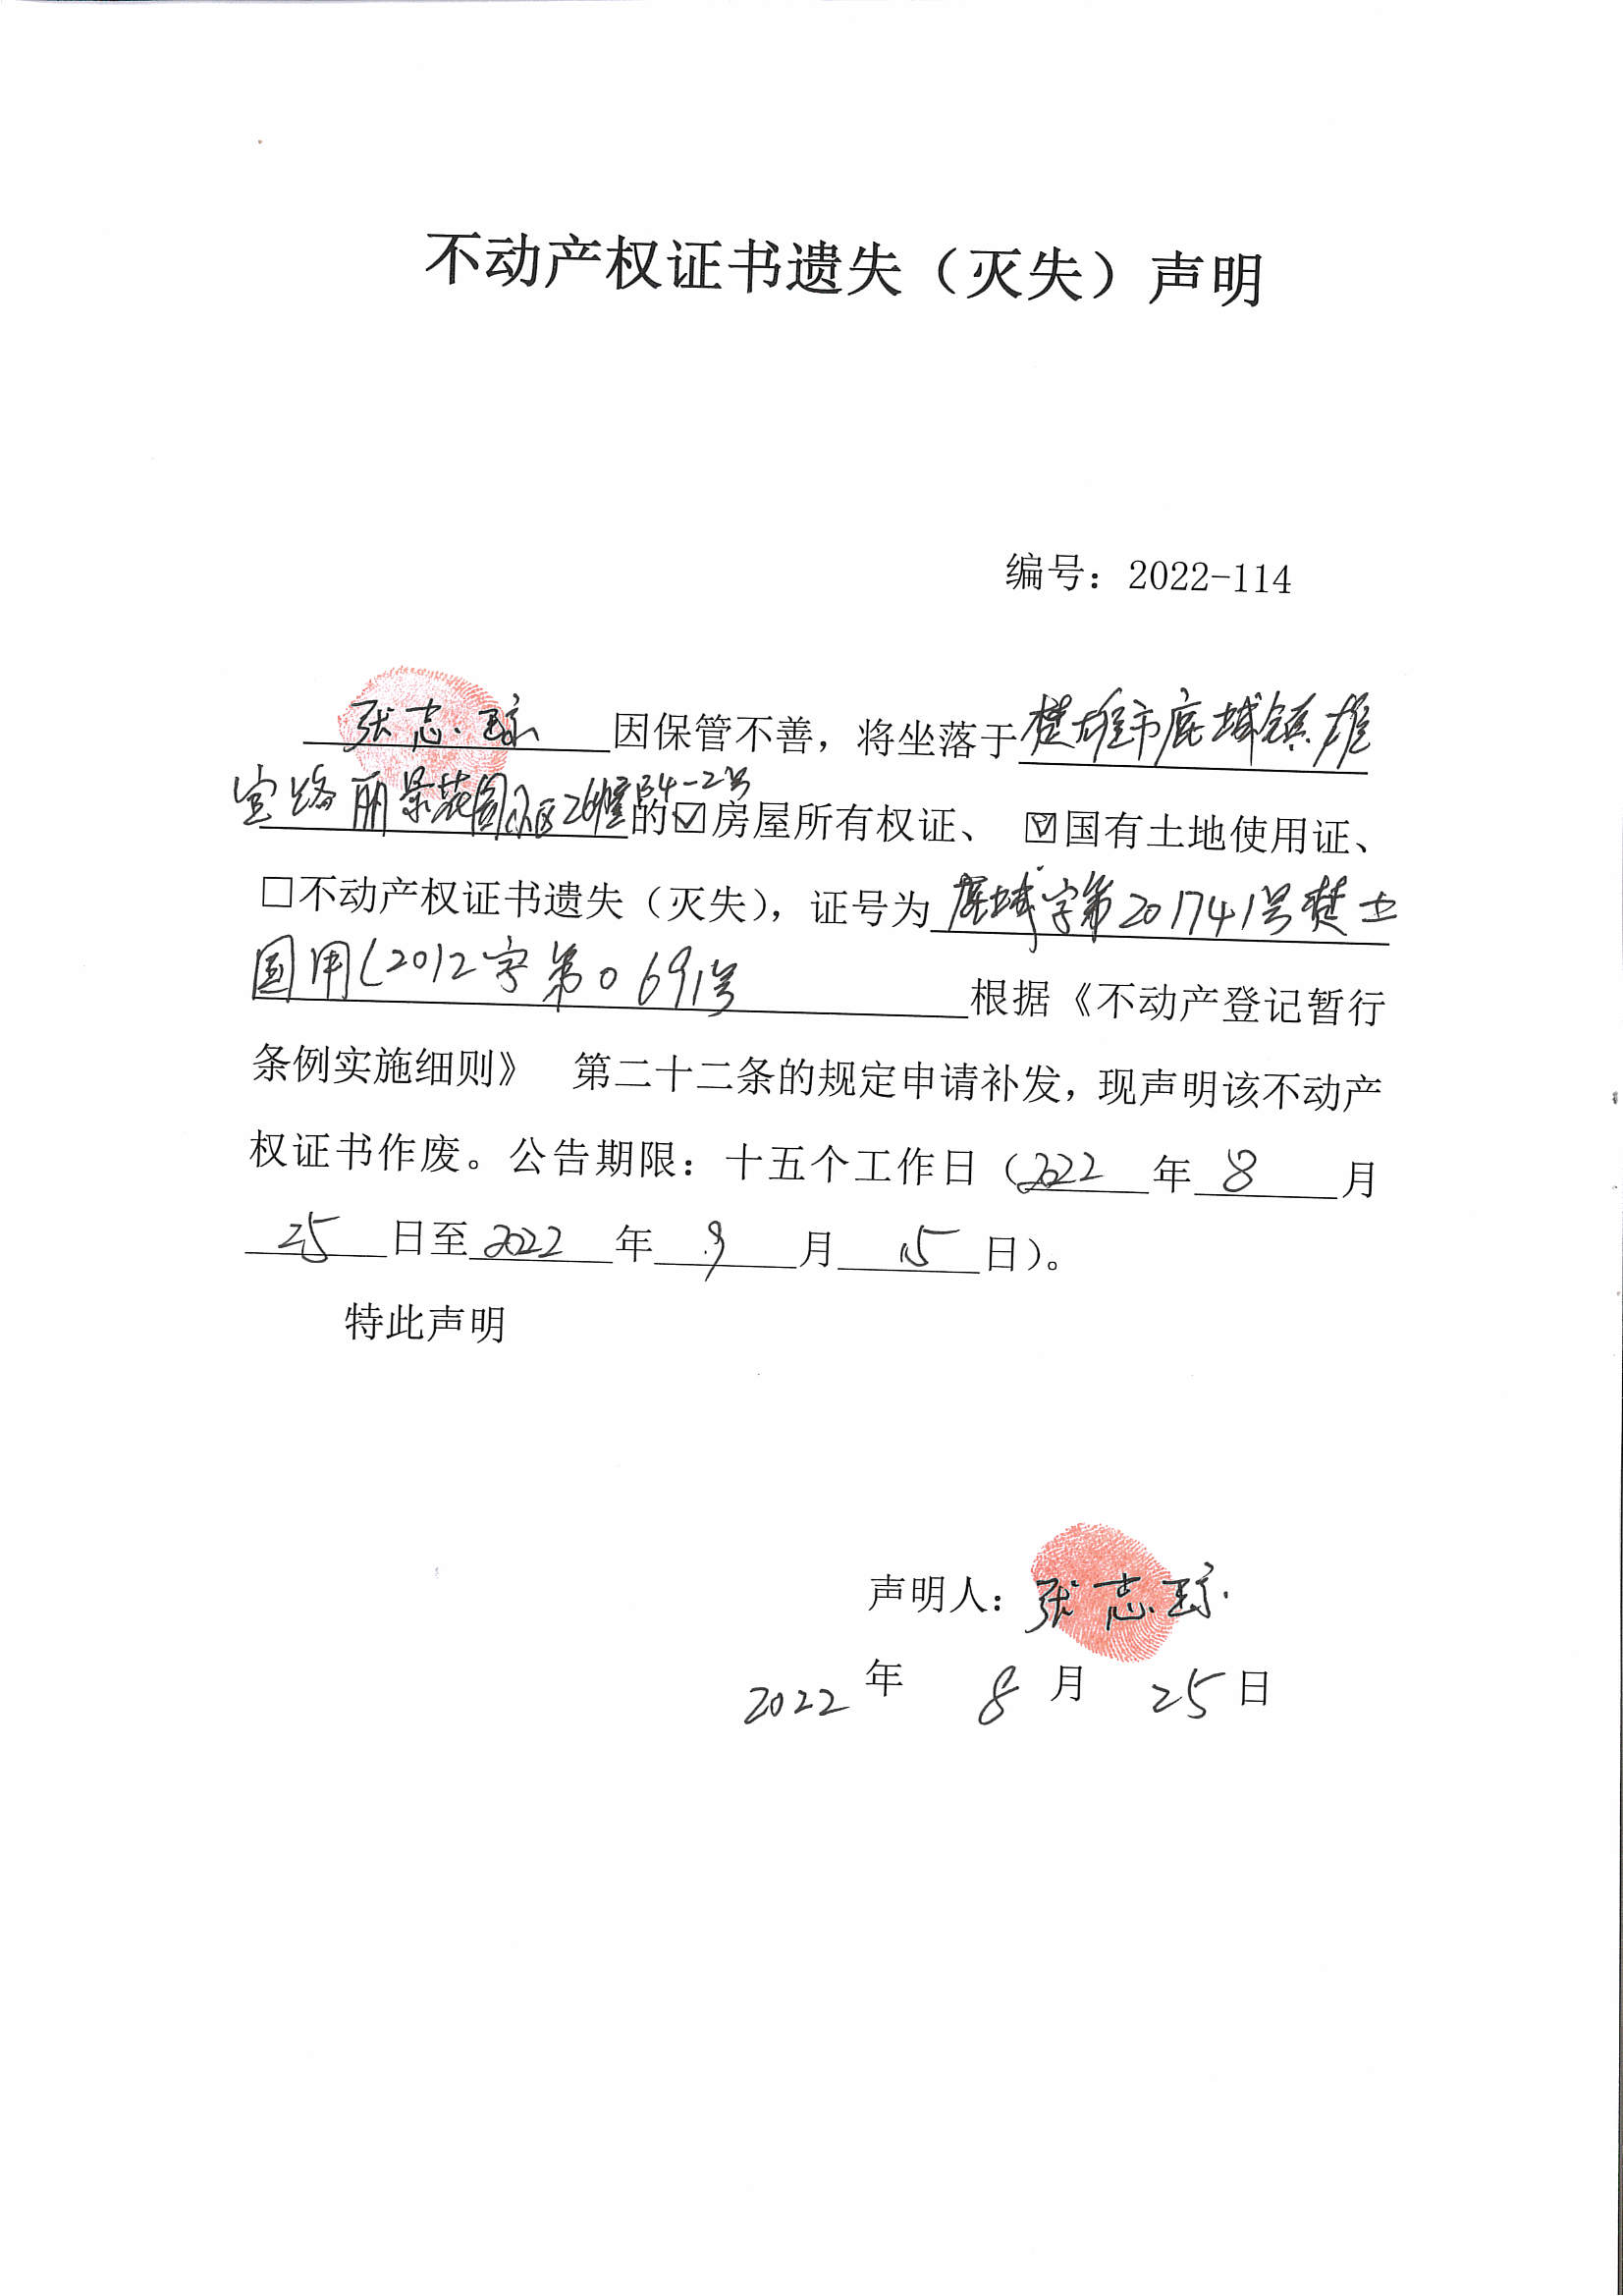 不动产权证书遗失（灭失）声明
编号：2022-114
张志琼因保管不善，将坐落于楚雄市鹿城镇雄
宝路丽景花园小区26幢B4-2号的☑房屋所有权证、☑国有土地使用证、
□不动产权证书遗失（灭失），证号为鹿城字第201741号楚土
国用(2012字第0691号根据《不动产登记暂行
条例实施细则》 第二十二条的规定申请补发，现声明该不动产
权证书作废。公告期限：十五个工作日（2022年8月
25日至2022年9月15日）。
特此声明
声明人：张志琼
2022年8月25日